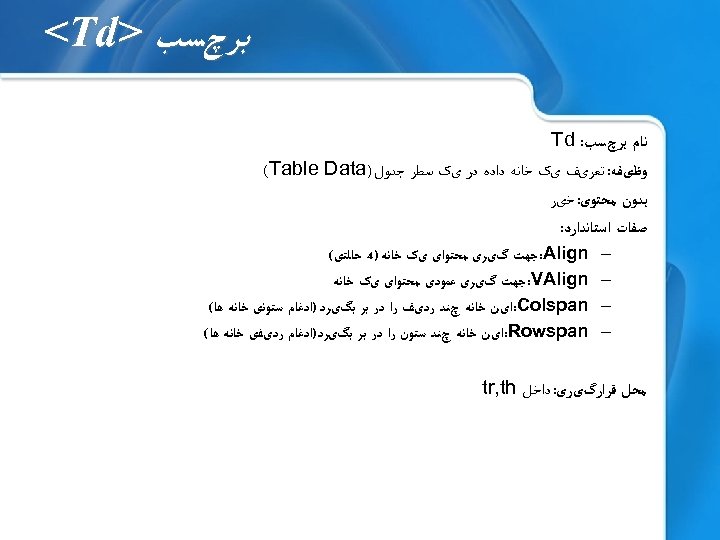 برچسب <Td>
نام برچسب: Td
وظیفه: تعریف یک خانه داده در یک سطر جدول (Table Data)
بدون محتوی: خیر
صفات استاندارد:
– Align: جهت گیری محتوای یک خانه (4 حالتی)
– VAlign: جهت گیری عمودی محتوای یک خانه
– Colspan: این خانه چند ردیف را در بر بگیرد (ادغام ستونی خانه ها)
– Rowspan: این خانه چند ستون را در بر بگیرد (ادغام ردیفی خانه ها)
محل قرارگیری: داخل tr, th